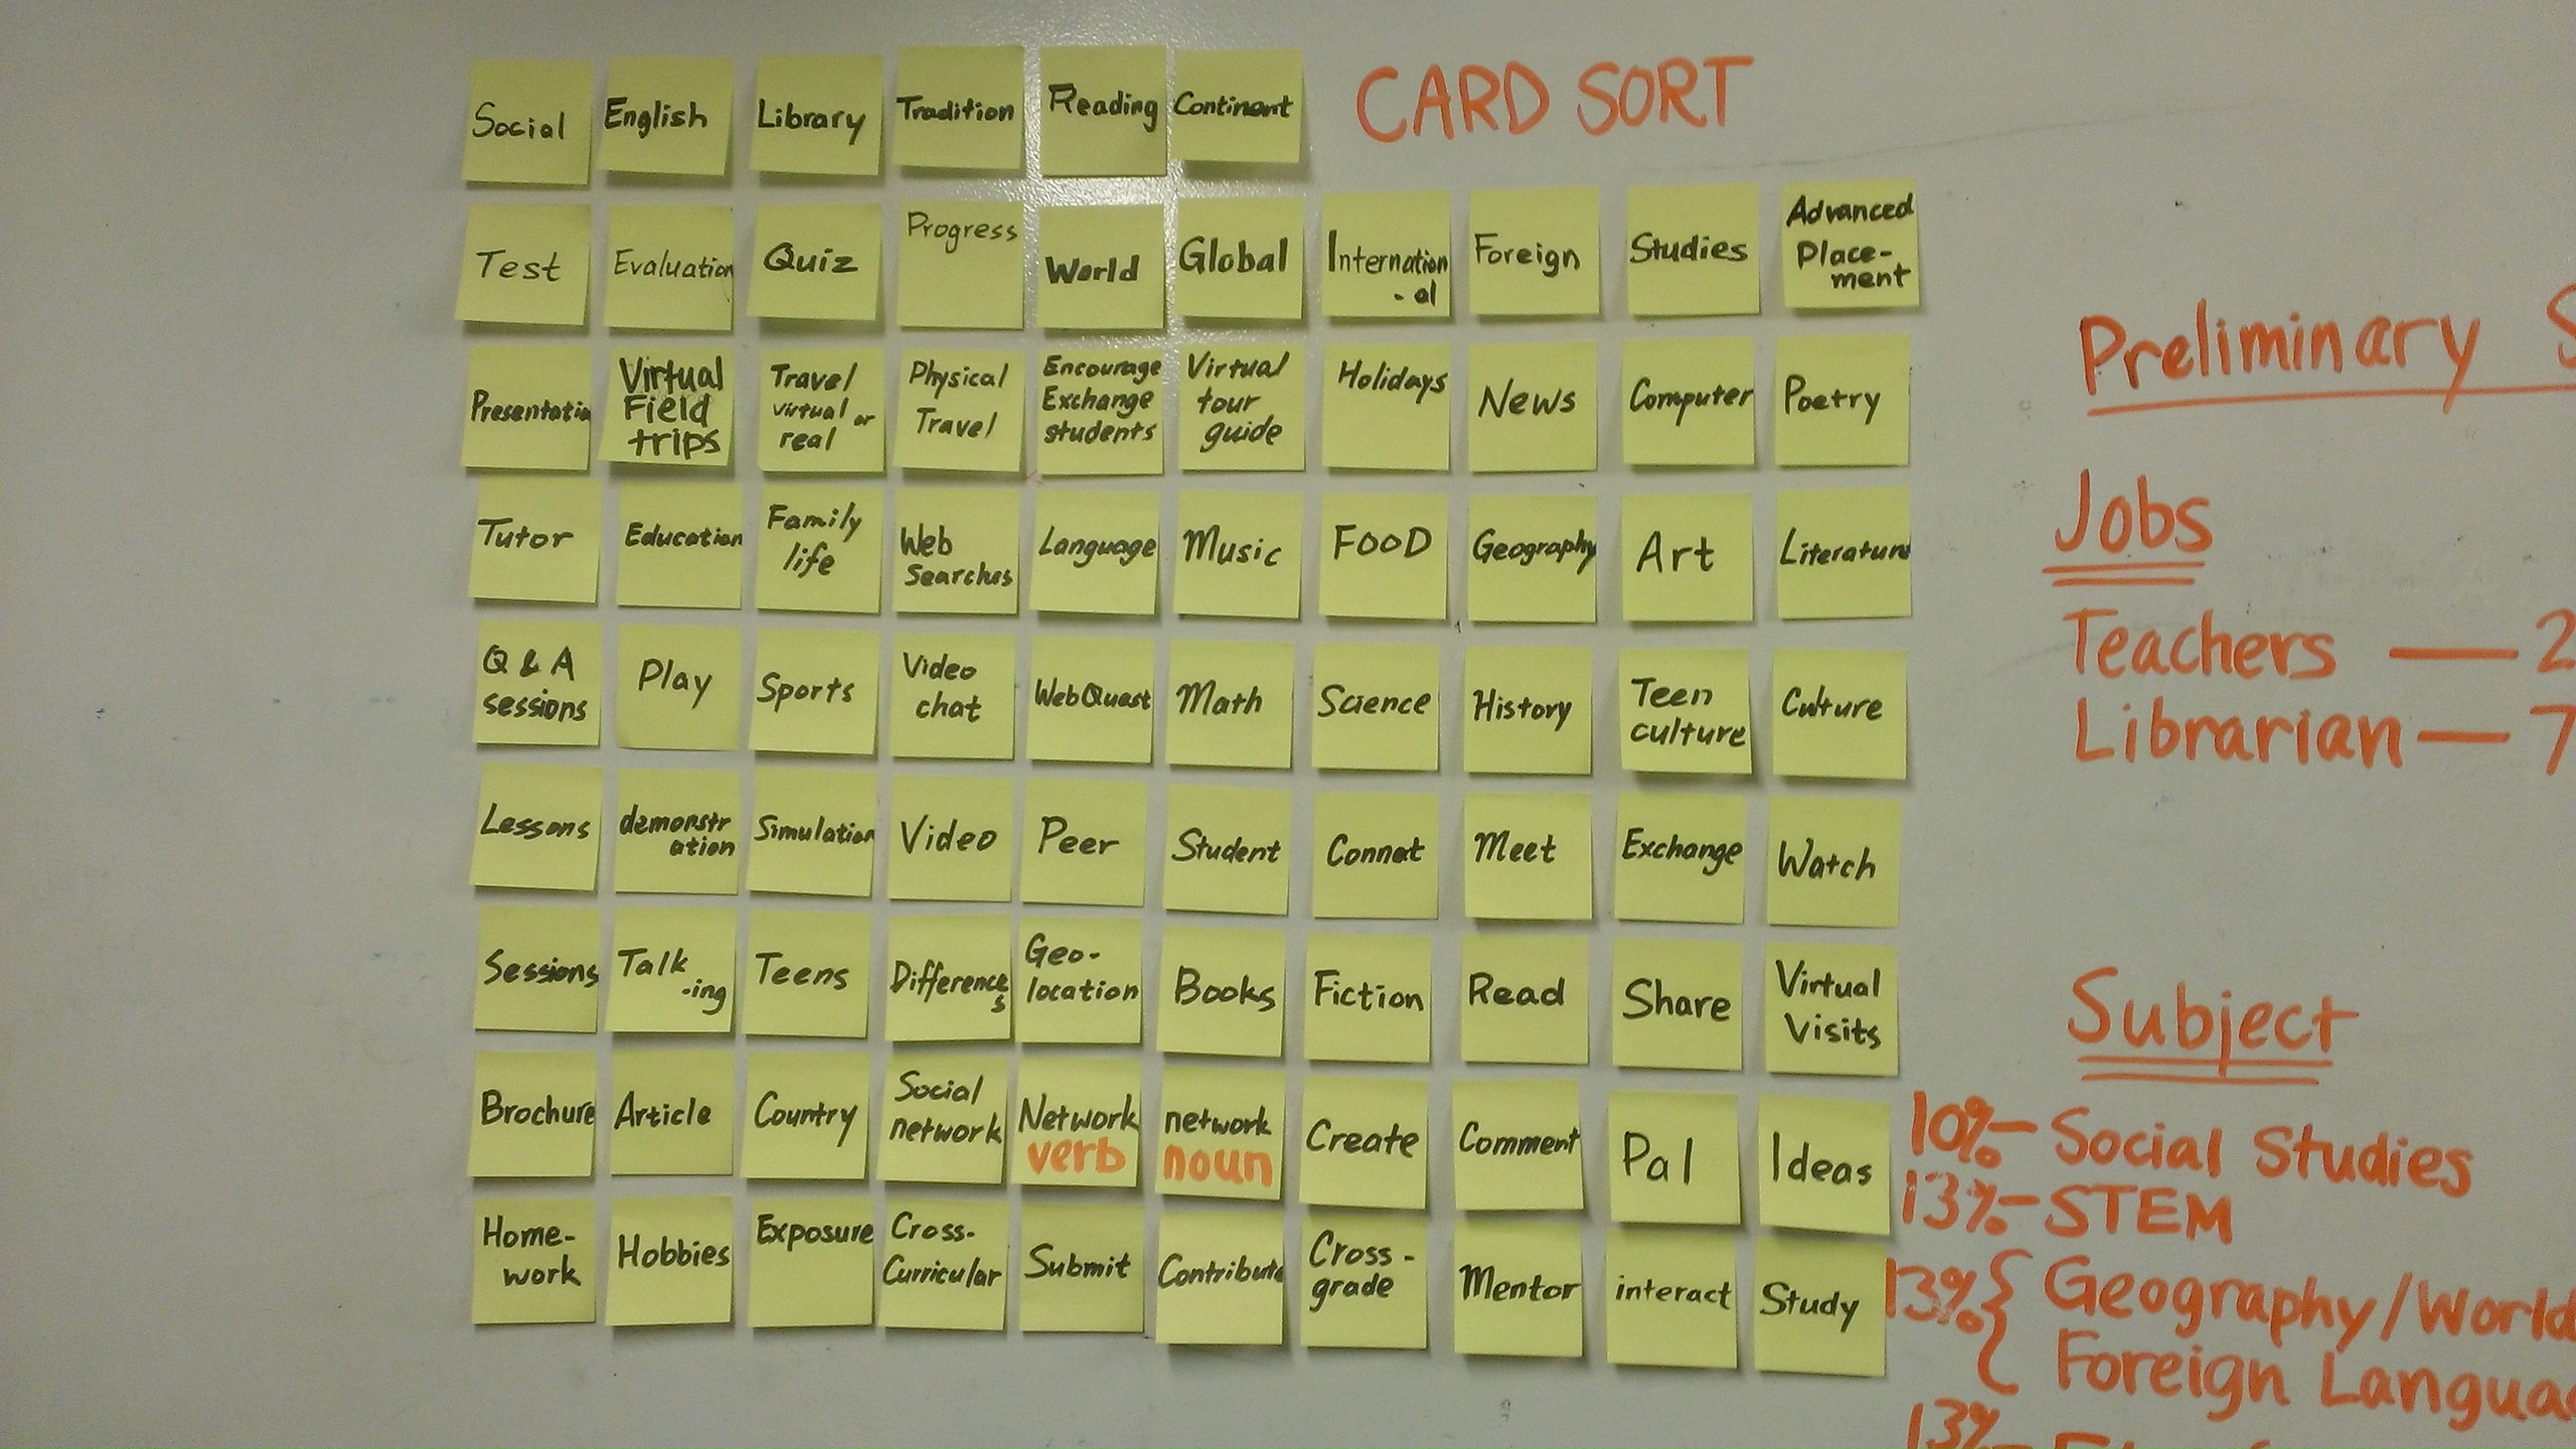 CARD SORT
Social
English
Library
Tradition
Reading
Continent
Test
Evaluation
Quiz
Progress
World
Global
Internation
-al
Foreign
Studies
Advanced
Place-
ment
Presentatio
Virtual
Field
trips
Travel
virtual or
real
Physical
Travel
Encourage
Exchange
students
Virtual
tour
guide
Holidays
News
Computer
Poetry
Tutor
Education
Family
life
Web
Searches
Language
Music
FOOD
Geography
Art
Literature
Q & A
sessions
Play
Sports
Video
chat
WebQuest
Math
Science
History
Teen
culture
Culture
Lessons
demonstr
ation
Simulation
Video
Peer
Student
Connect
Meet
Exchange
Watch
Sessions
Talk
-ing
Teens
Difference
s
Geo-
location
Books
Fiction
Read
Share
Virtual
Visits
Brochure
Article
Country
Social
network
Network
verb
network
noun
Create
Comment
Pal
Ideas
Home-
work
Hobbies
Exposure
Cross-
Curricular
Submit
Contribute
Cross-
grade
Mentor
interact
Study
Preliminary S
Jobs
Teachers — 2
Librarian — 7
Subject
10% - Social Studies
13% - STEM
13% { Geography/World
Foreign Langua
13%